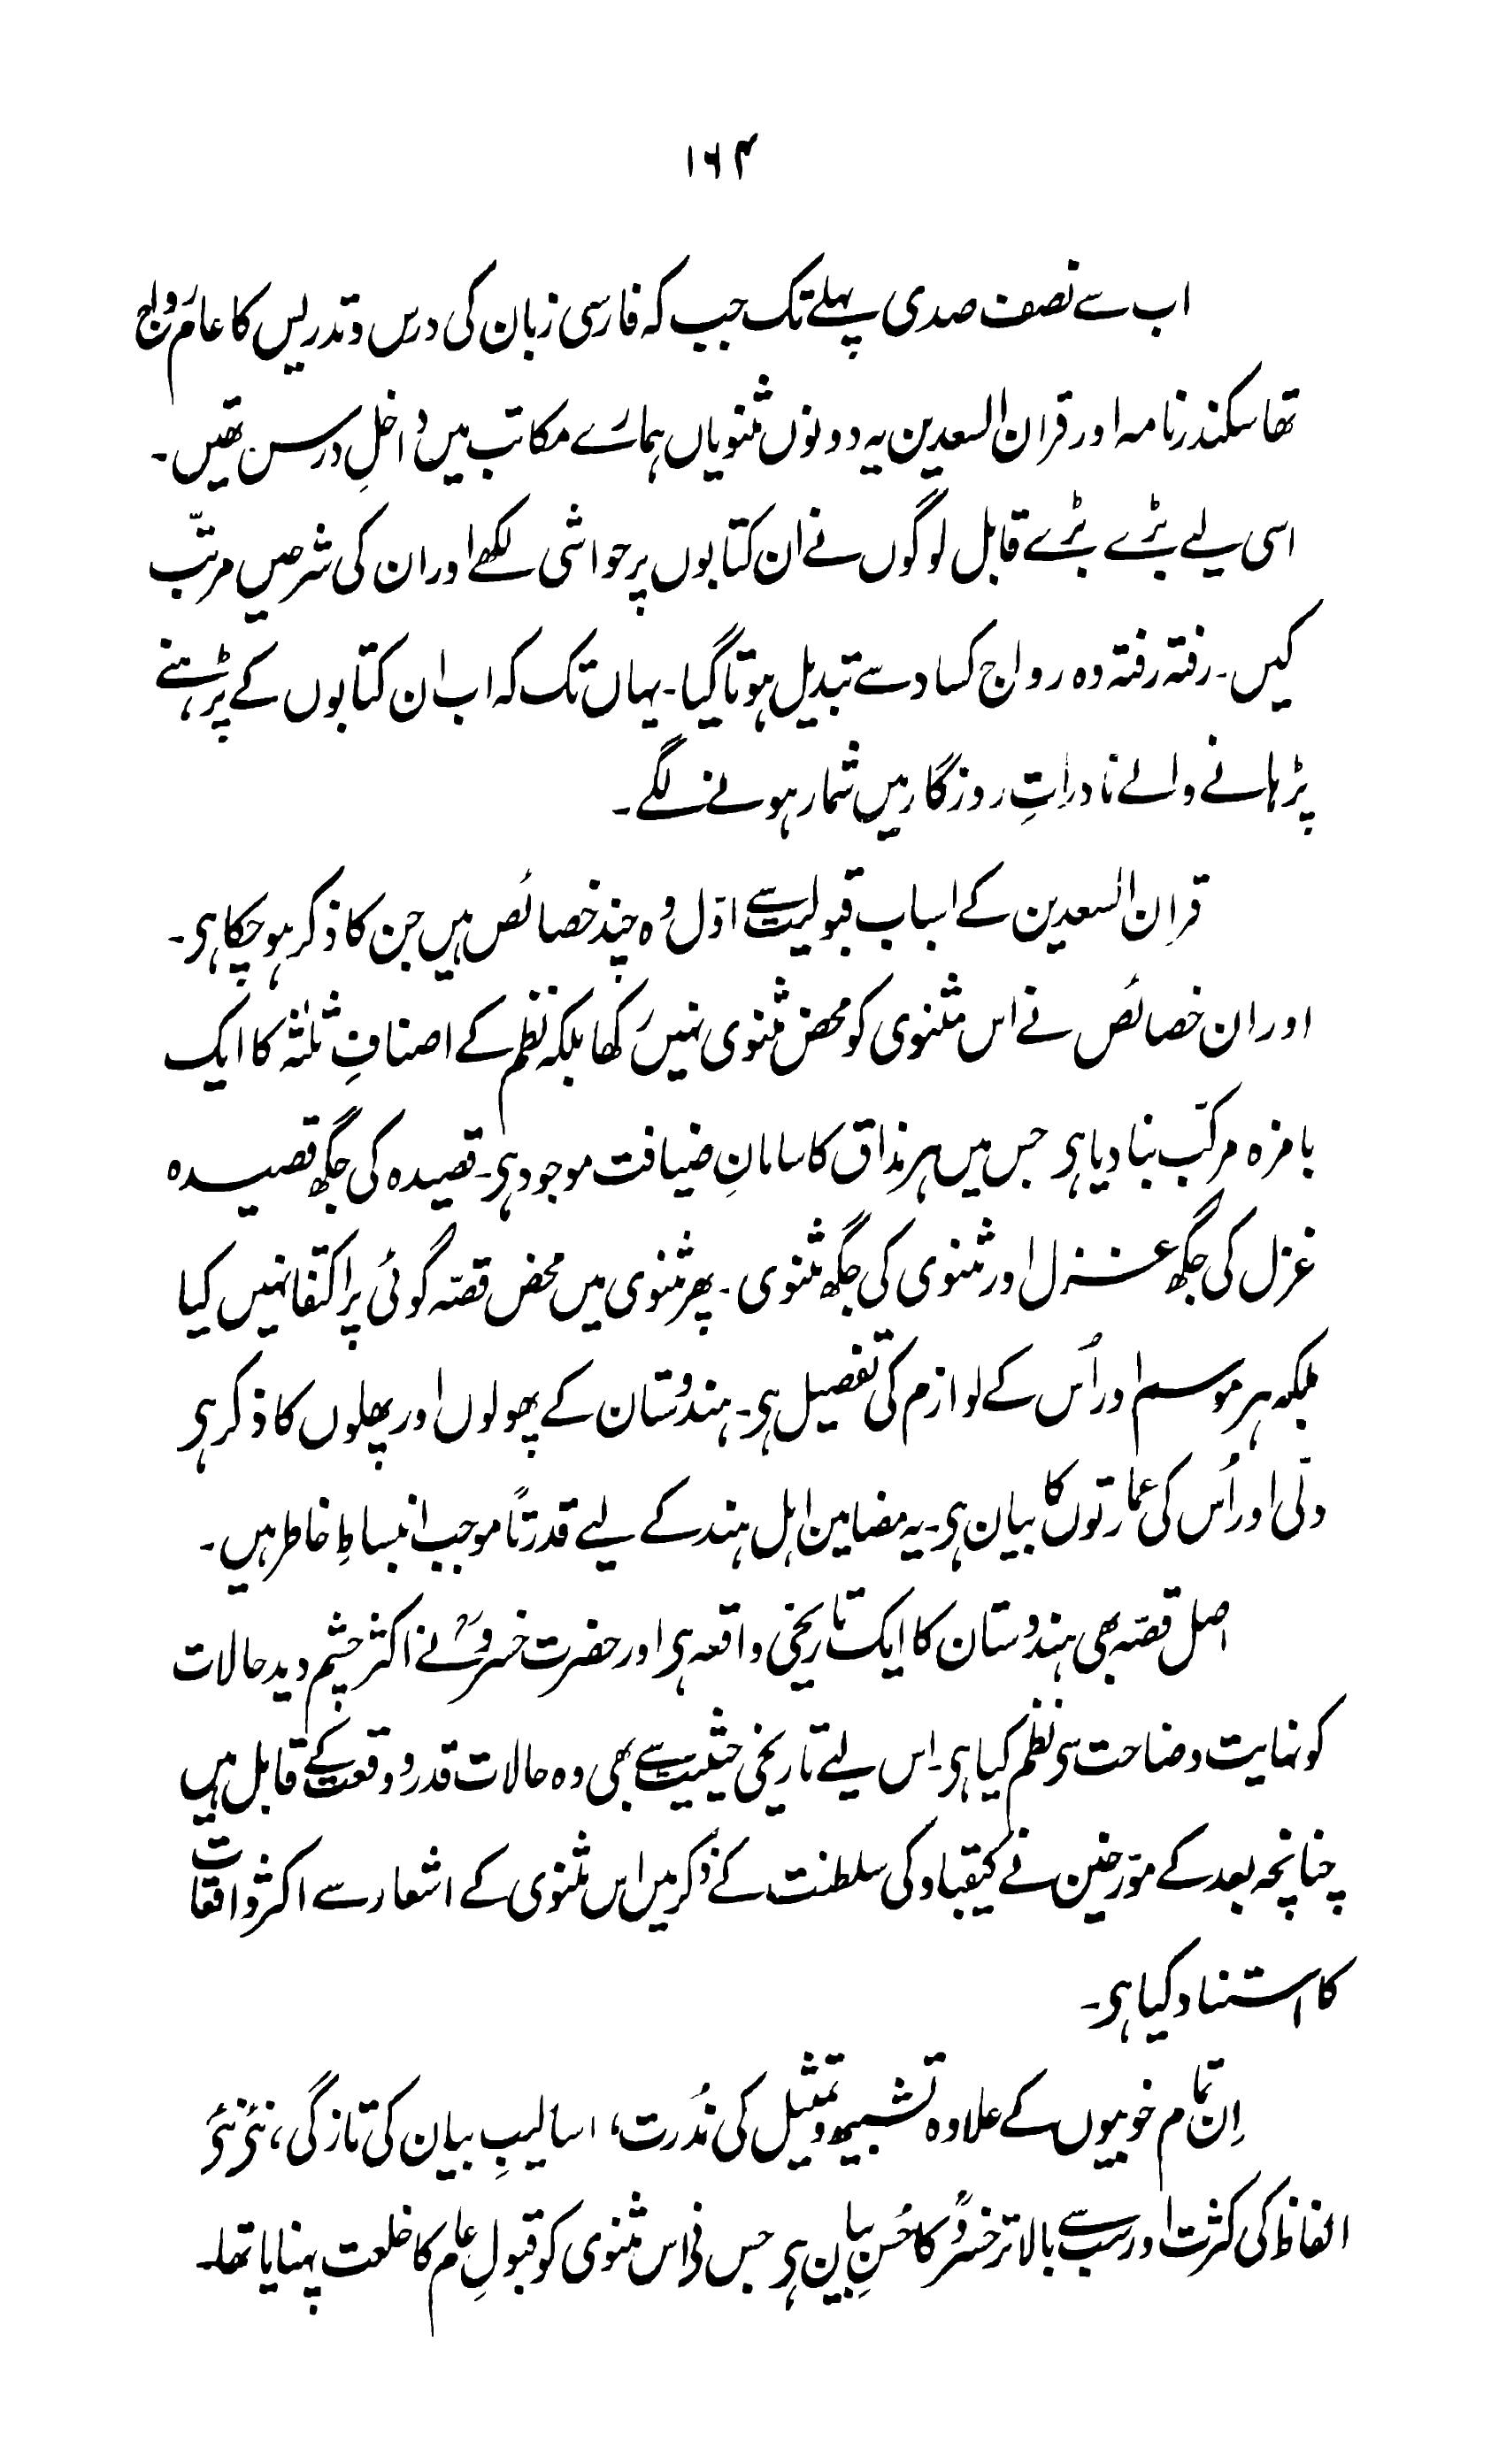 ۱۶۴
اب سے نصف صدی پہلے تک جب کہ فارسی زبان کی درس و تدریس کا عام رواج
تھا سکندرنامہ اور قران السعدین یہ دونوں مثنویاں ہمارے مکاتب میں داخلِ درس تھیں۔
اسی لیے بڑے بڑے قابل لوگوں نے ان کتابوں پر حواشی لکھے اور ان کی شرحیں مرتّب
کیں۔ رفتہ رفتہ وہ رواج کساد سے تبدیل ہوتا گیا۔ یہاں تک کہ اب ان کتابوں کے پڑہنے
پڑہانے والے نادراتِ روزگار میں شمار ہونے لگے۔
قران السعدین کے اسباب قبولیت سے اوّل وہ چند خصائص ہیں جن کا ذکر ہو چکا ہی۔
اور ان خصائص نے اس مثنوی کو محض مثنوی نہیں رکھا بلکہ نظم کے اصنافِ ثلٰثہ کا ایک
بامزہ مرکّب بنا دیا ہی جس میں ہر مذاق کا سامانِ ضیافت موجود ہی۔ قصیدہ کی جگہ قصیدہ
غزل کی جگہ غزل اور مثنوی کی جگہ مثنوی۔ پھر مثنوی میں محض قصّہ گوئی پر اکتفا نہیں کیا
بلکہ ہر موسم اور اُس کے لوازم کی تفصیل ہی۔ ہندوستان کے پھولوں اور پھلوں کا ذکر ہی
دلّی اور اُس کی عمارتوں کا بیان ہی۔ یہ مضامین اہل ہند کے لیے قدرتاً موجب انبساطِ خاطر ہیں۔
اصل قصّہ بھی ہندوستان کا ایک تاریخی واقعہ ہی اور حضرت خسروؒ نے اکثر چشم دید حالات
کو نہایت وضاحت ہی نظم کیا ہی۔ اس لیے تاریخی حیثیت سے بھی وہ حالات قدر و وقعت کے قابل ہیں
چنانچہ بعد کے مورّخین نے کیقباد کی سلطنت کے ذکر میں اس مثنوی کے اشعار سے اکثر واقعات
کا استناد کیا ہی۔
اِن تمام خوبیوں کے علاوہ تشبیہ و تمثیل کی نُدرت، اسالیبِ بیان کی تازگی، نئی نئی
الفاظ کی کثرت اور سب سے بالاتر خسروؒ کا حُسنِ بیان ہی جس نی اس مثنوی کو قبولِ عام کا خلعت پہنایا تھا۔